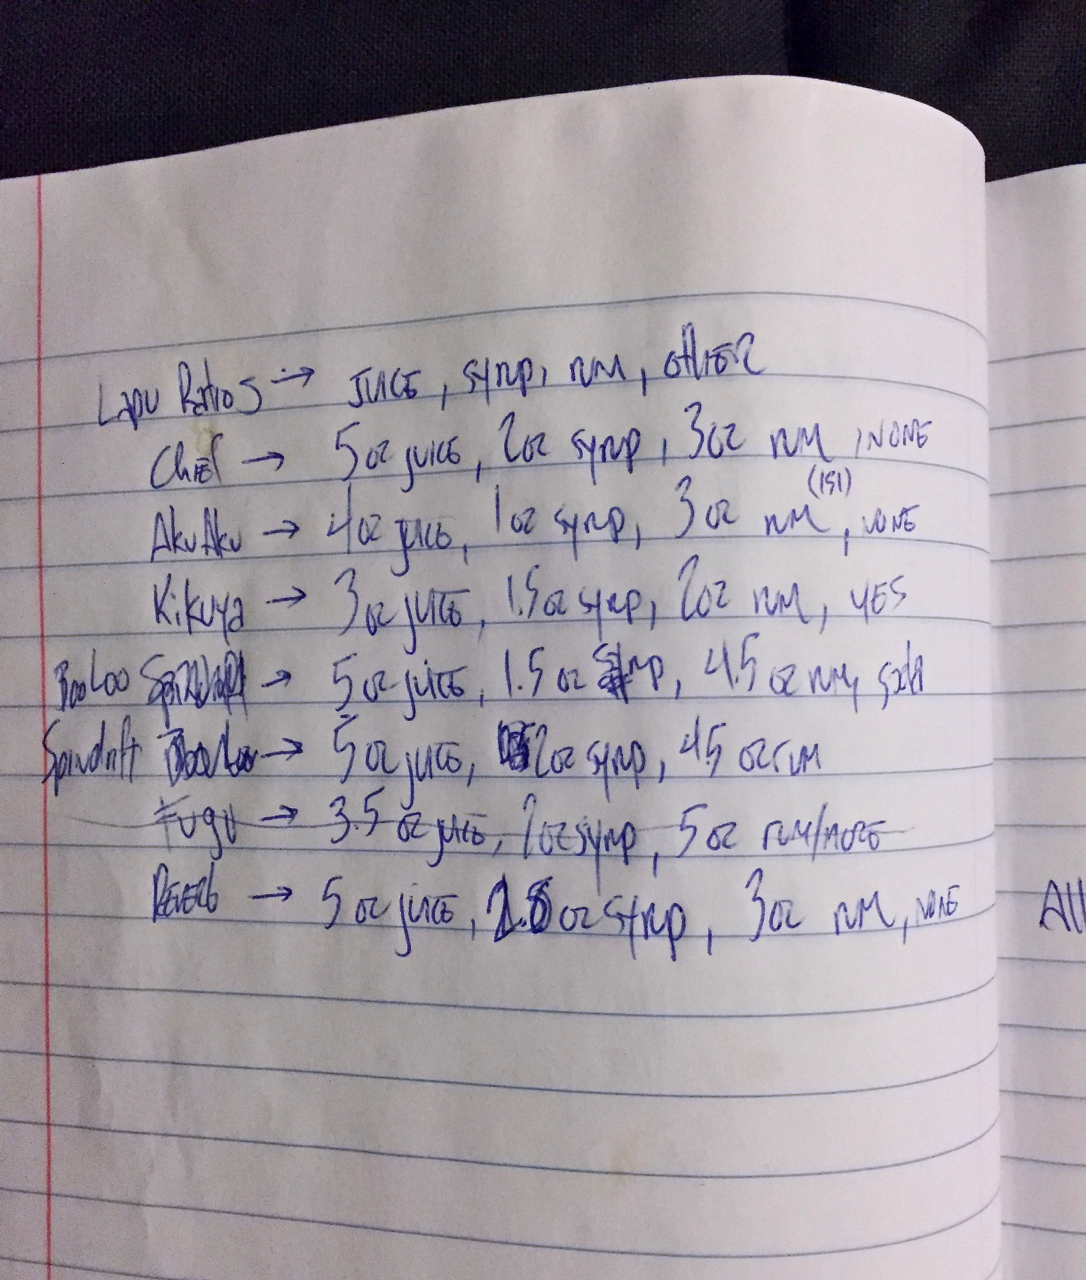 Lapu Ratios → JUICE, syrup, rum, OTHER
Chief → 5oz juice, 2oz syrup, 3oz rum, NONE
Aku Aku → 4oz juice, 1oz syrup, 3oz rum (151), NONE
Kikuya → 3oz juice, 1.5oz syrup, 2oz rum, YES
Booloo → 5oz juice, 1.5oz syrup, 4.5oz rum, soda
Spindrift → 5oz juice, 2oz syrup, 4.5 oz rum
Fugu → 3.5 oz juice, 2oz syrup, 5oz rum/more
Reverb → 5oz juice, oz syrup, 3oz rum, NONE
All